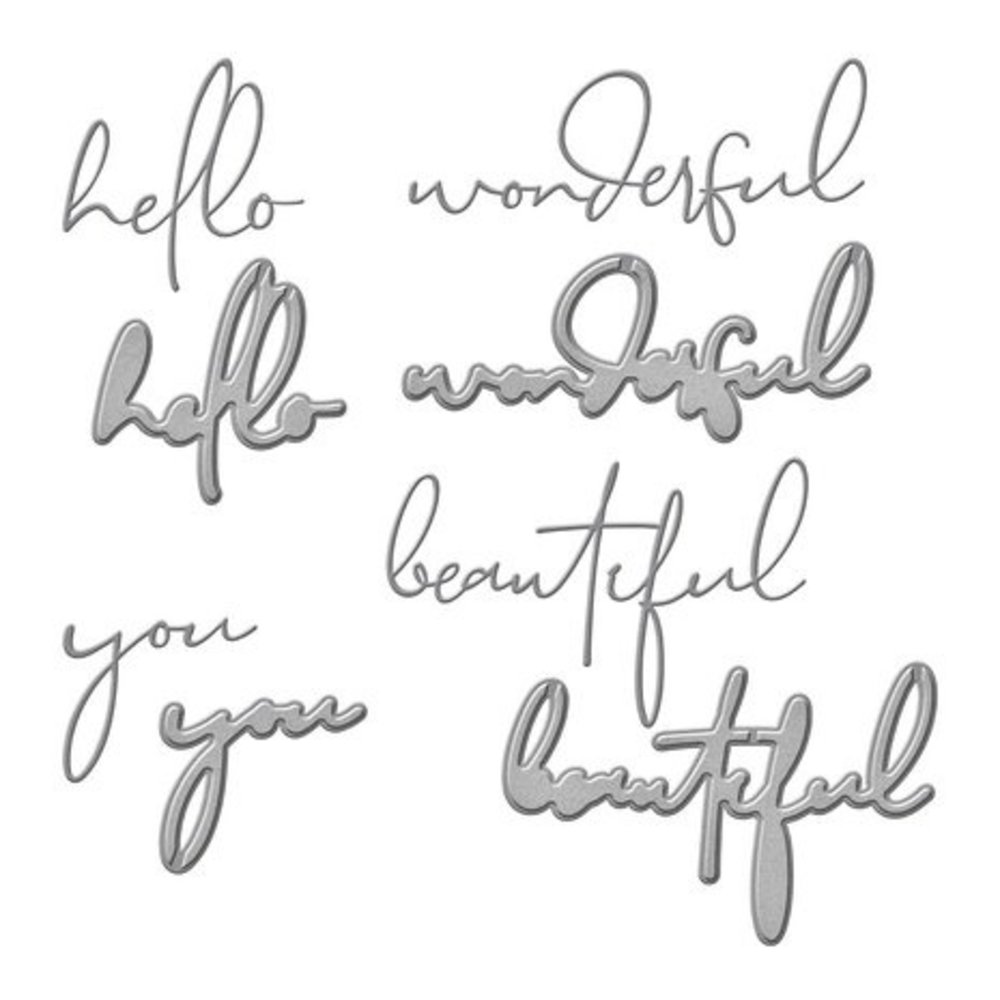 hello
wonderful
hello
wonderful
beautiful
you
you
beautiful